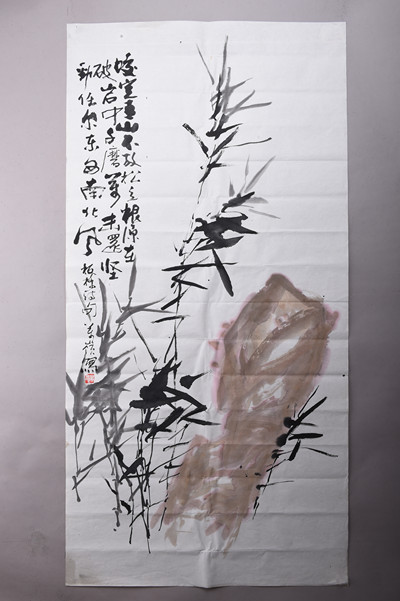 咬定青山不放松立根原在
破岩中千磨萬击還坚
劲任尔东西南北风
板桥诗